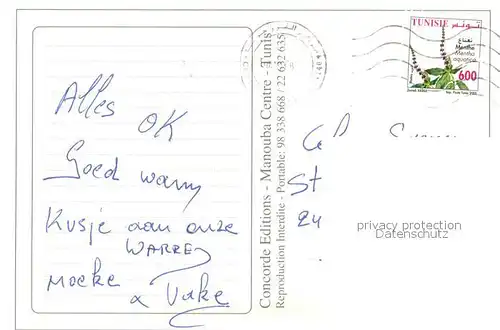 Alles
OK
Goed warm
Kusje aan onze
WARRE
moeke
& Vake
Concorde Editions - Manouba Centre - Tunis
Reproduction Interdite - Portable: 98 338 668 / 22 632 635
TUNISIE تونس
نعناع
Menthe
Mentha
aquatica
600
St
24
privacy protection
Datenschutz